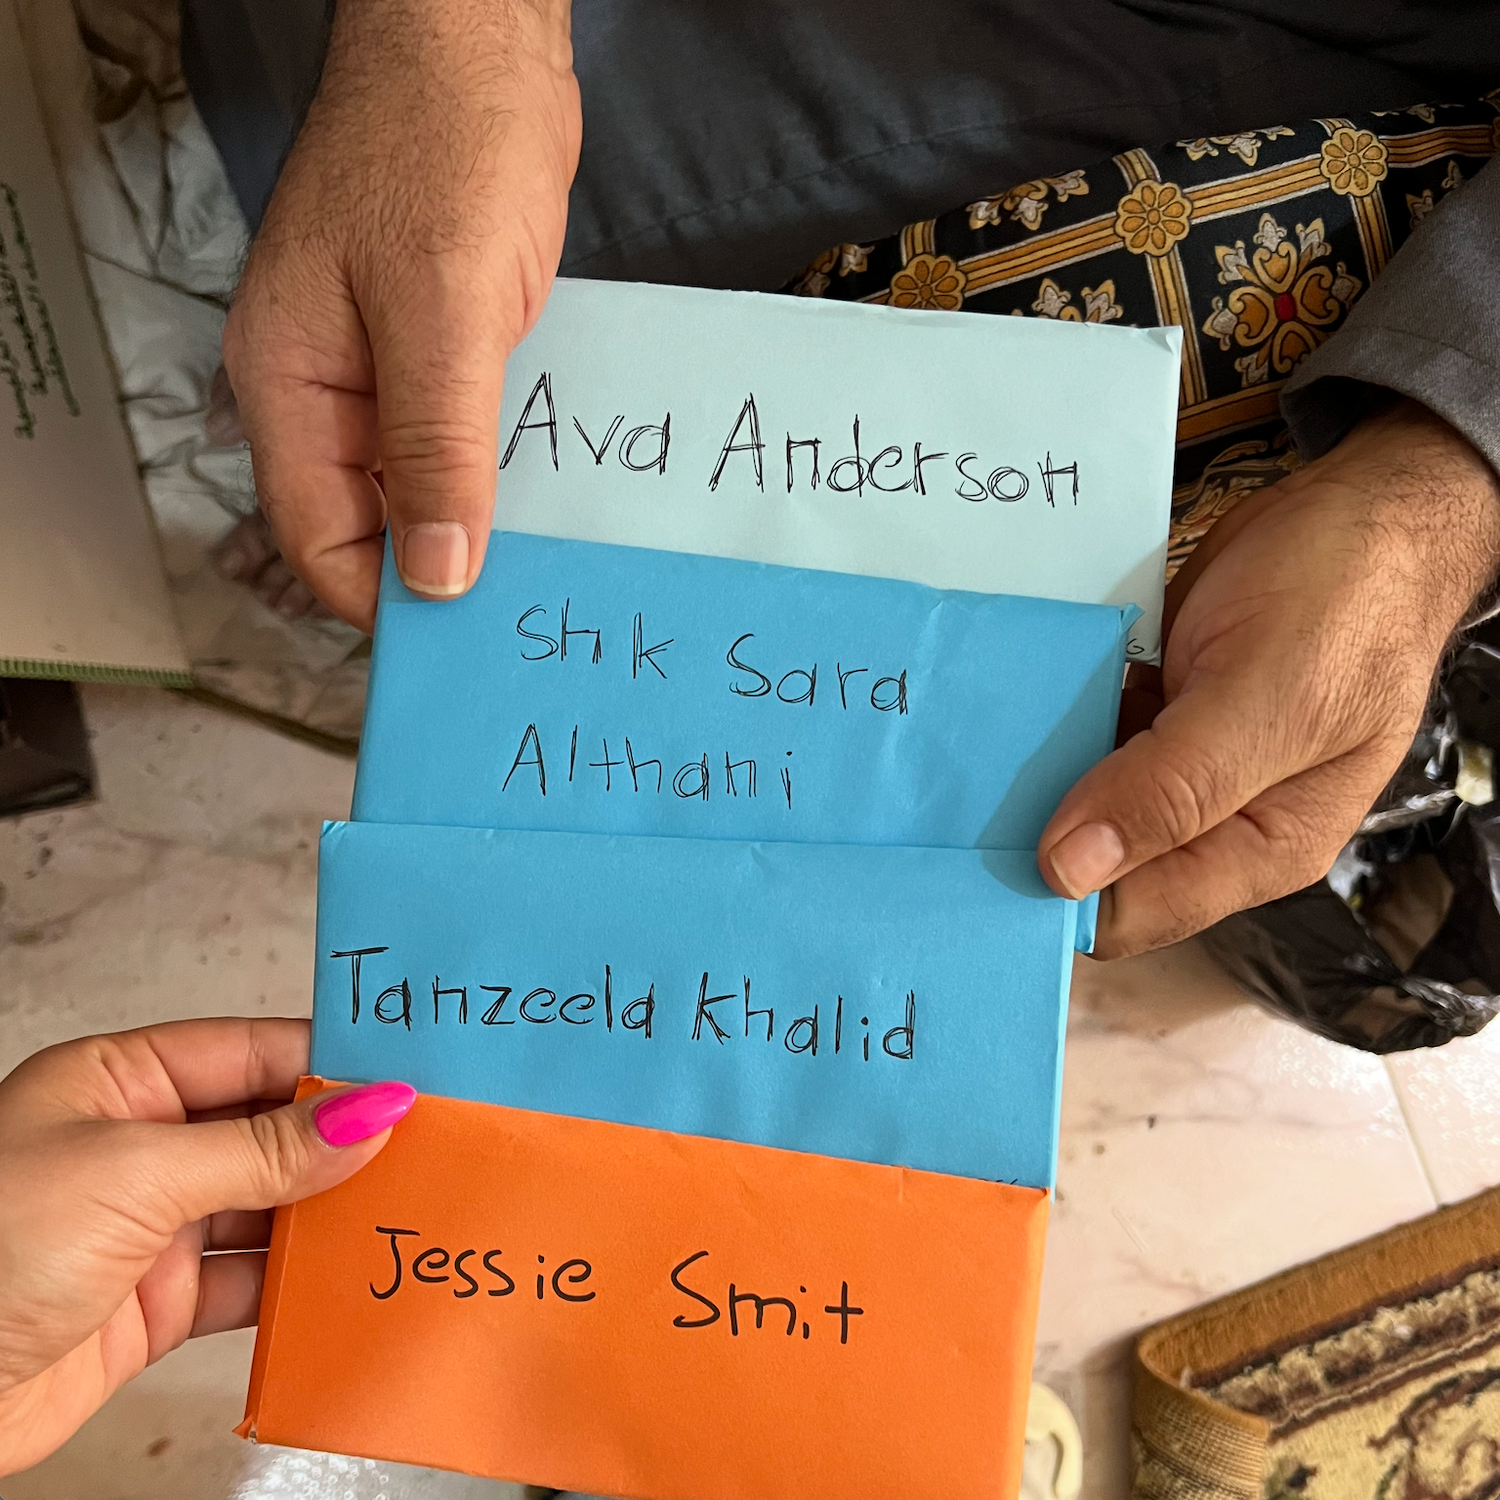 Ava Anderson
Shk Sara
Althani
Tanzeela Khalid
Jessie Smit